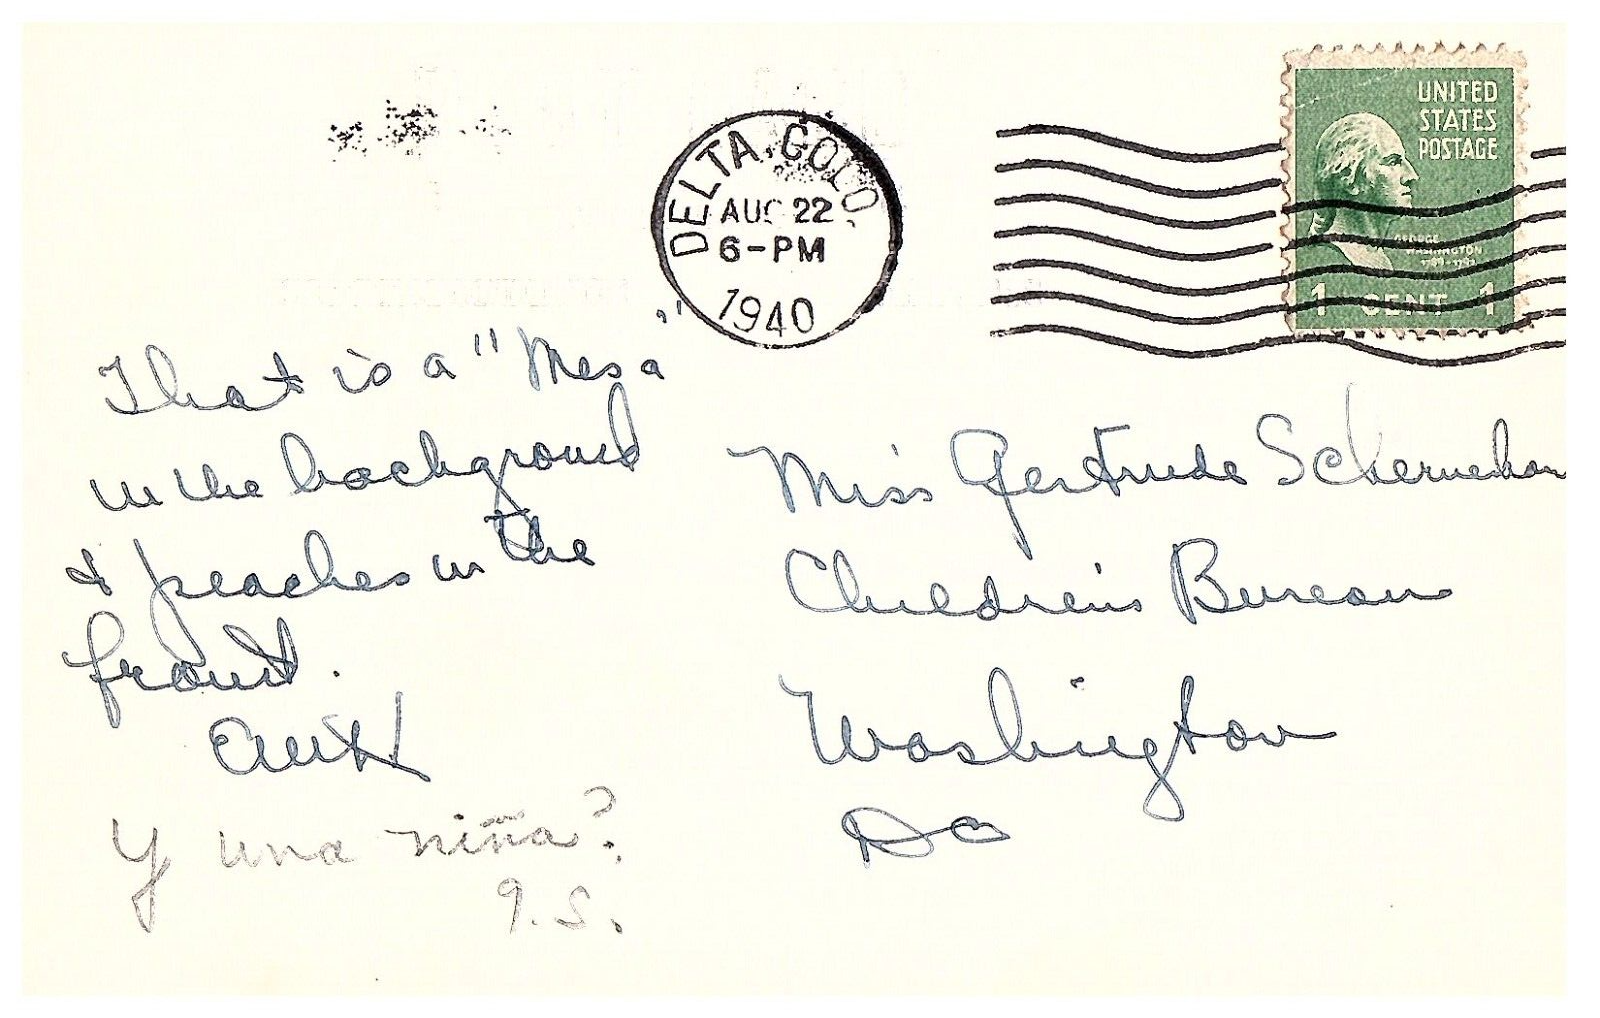 DELTA, COLO.
AUG 22
6-PM
1940
UNITED
STATES
POSTAGE
GEORGE
WASHINGTON
1 CENT 1
That is a "Mesa"
in the background
& peaches in the
front.
Y una niña?
G.S.
Miss Gertrude
Children's Bureau
Washington
DC